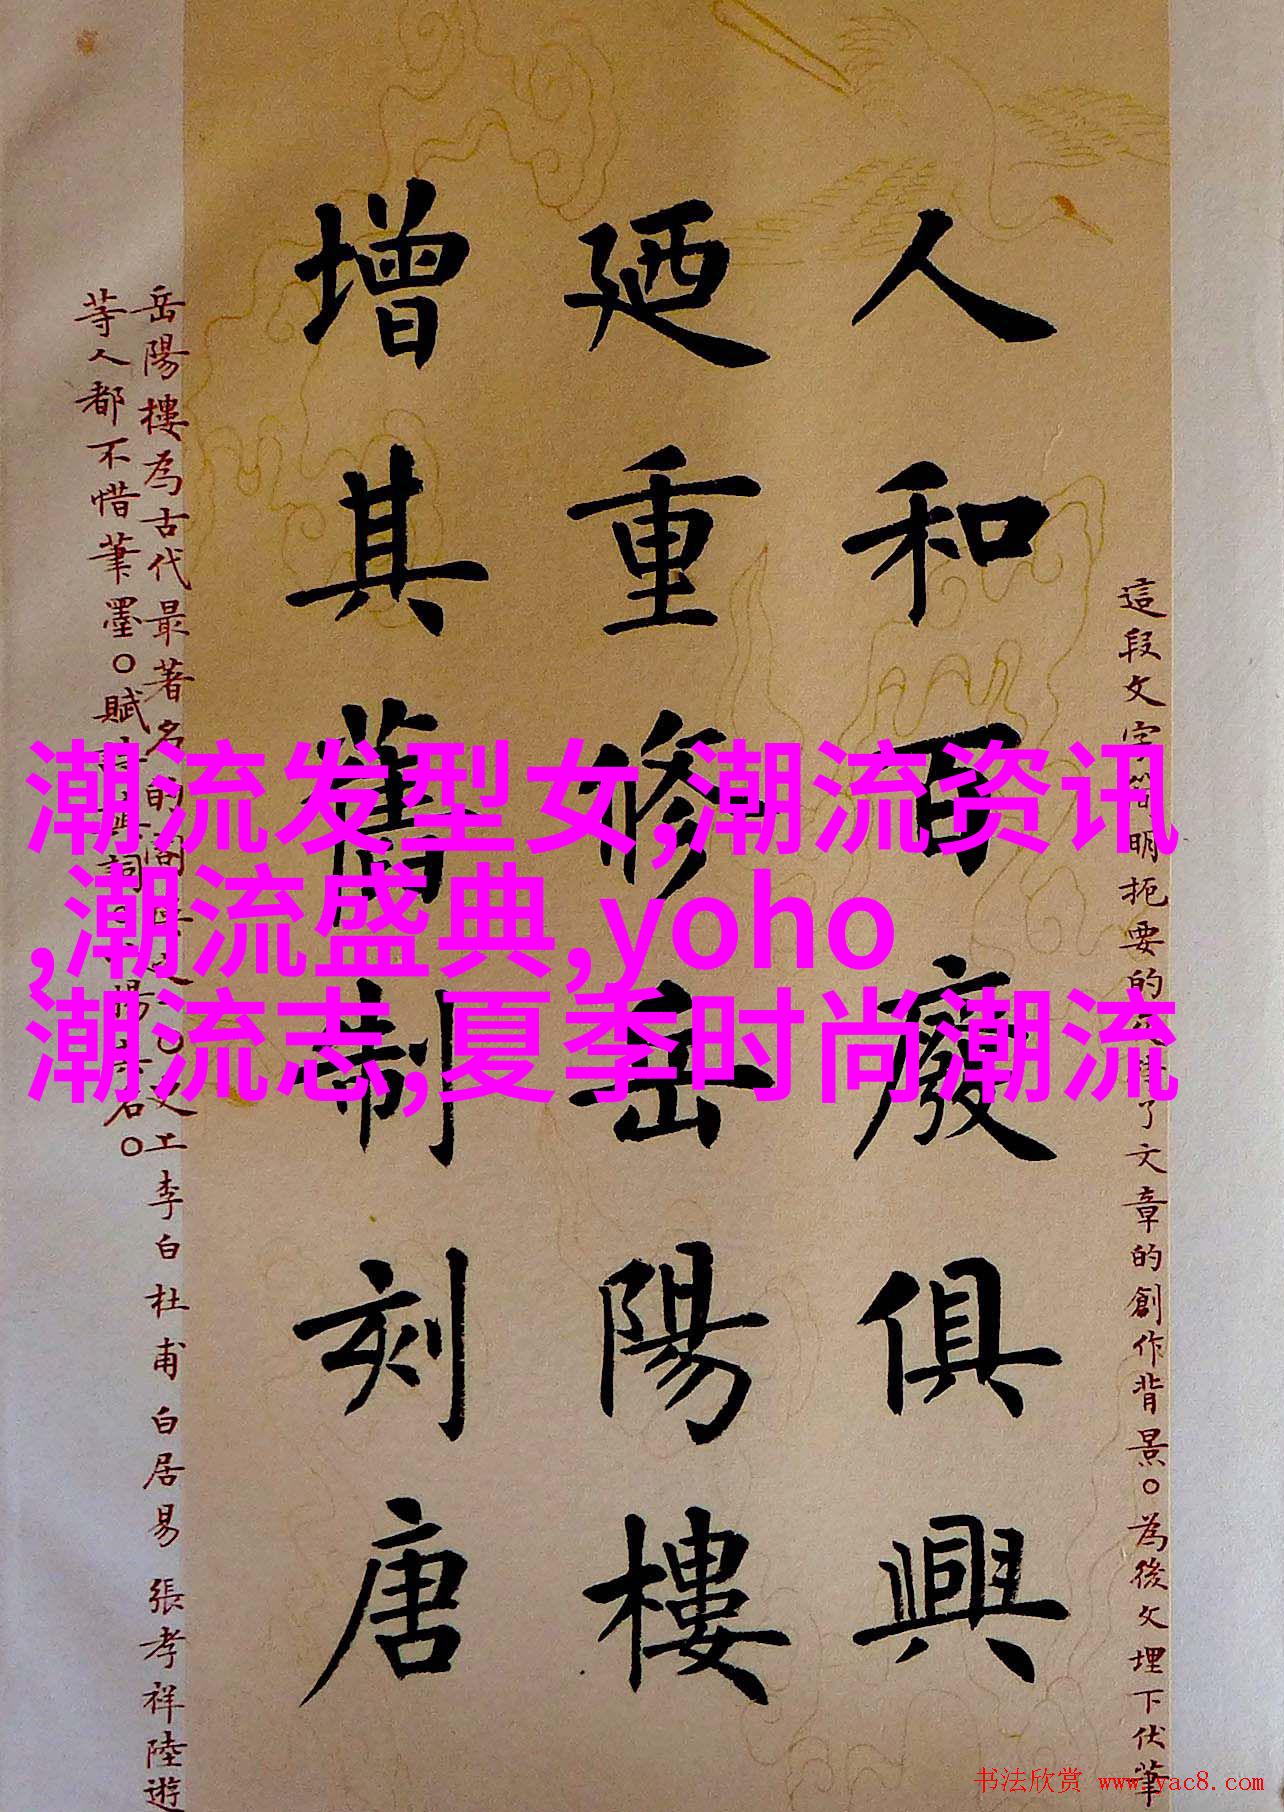 人和百廢俱興
廼重修岳陽樓
增其舊制刻唐
這段文字簡明扼要的交待了文章的創作背景。為後文埋下伏筆
岳陽樓為古代最著名的
李白杜甫白居易張孝祥陸遊
等人都不惜筆墨。賦
潮流发型女,潮流资讯
,潮流盛典,yoho
潮流志,夏季时尚潮流
书法欣赏 www.yac8.com